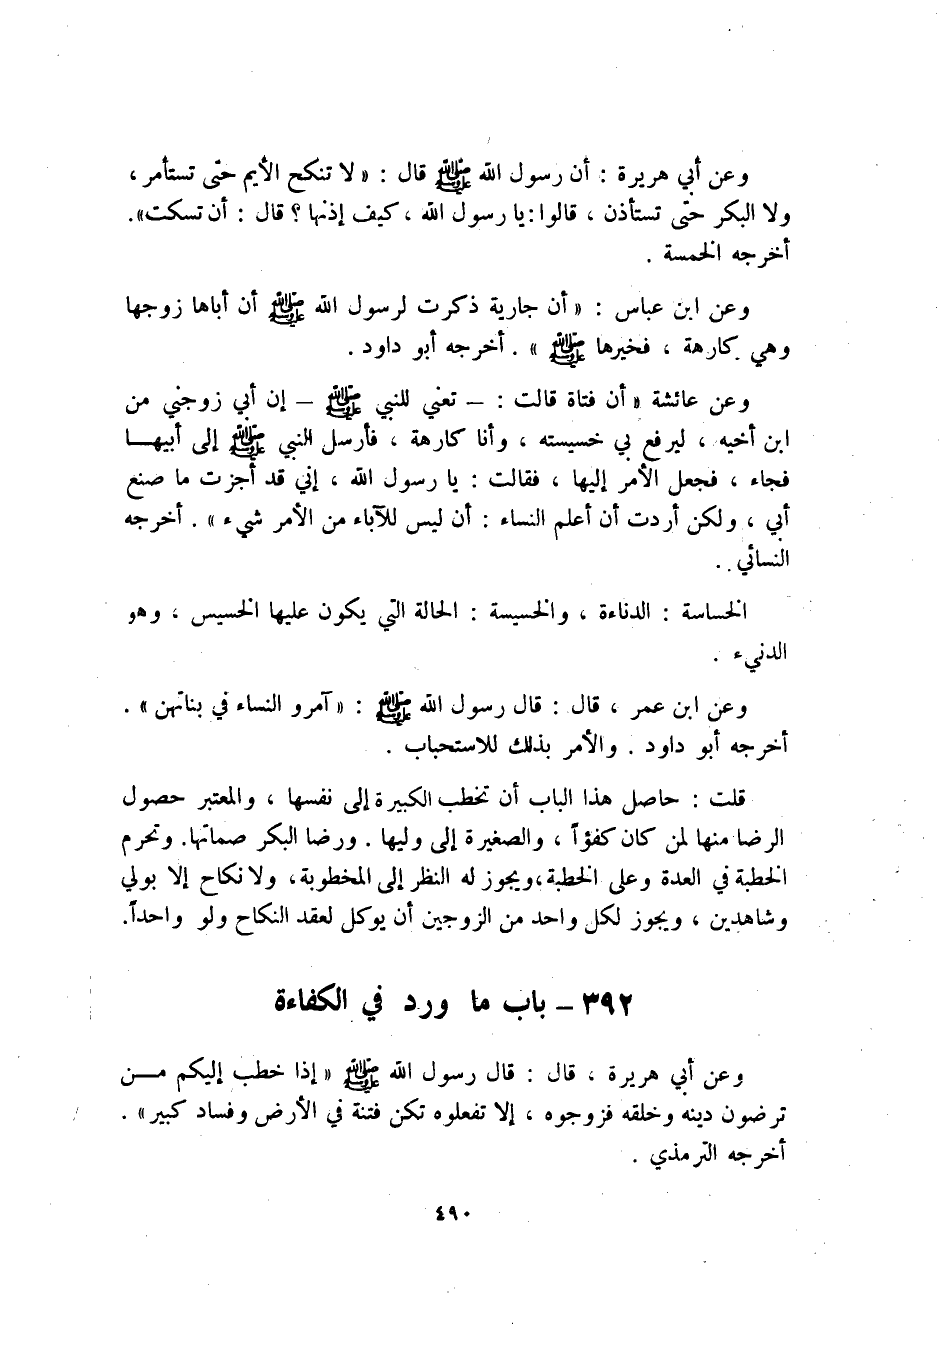 وعن أبي هريرة : أن رسول الله ﷺ قال : « لا تنكح الأيم حتى تستأمر ،
ولا البكر حتى تستأذن ، قالوا : يا رسول الله ، كيف إذنها ؟ قال : أن تسكت».
أخرجه الخمسة .
وعن ابن عباس : « أن جارية ذكرت لرسول الله ﷺ أن أباها زوجها
وهي كارهة ، فخيرها ﷺ » . أخرجه أبو داود .
وعن عائشة « أن فتاة قالت : – تعني للنبي ﷺ – إن أبي زوجني من
ابن أخيه ، ليرفع بي خسيسته ، وأنا كارهة ، فأرسل النبي ﷺ إلى أبيهـا
فجاء ، فجعل الأمر إليها ، فقالت : يا رسول الله ، إني قد أجزت ما صنع
أبي ، ولكن أردت أن أعلم النساء : أن ليس للآباء من الأمر شيء » . أخرجه
النسائي .
الخساسة : الدناءة ، والخسيسة : الحالة التي يكون عليها الخسيس ، وهو
الدنيء .
وعن ابن عمر ، قال : قال رسول الله ﷺ : « آمرو النساء في بناتهن » .
أخرجه أبو داود . والأمر بذلك للاستحباب .
قلت : حاصل هذا الباب أن تخطب الكبيرة إلى نفسها ، والمعتبر حصول
الرضا منها لمن كان كفؤاً ، والصغيرة إلى وليها . ورضا البكر صماتها. وتحرم
الخطبة في العدة وعلى الخطبة،ويجوز له النظر إلى المخطوبة، ولا نكاح إلا بولي
وشاهدين ، ويجوز لكل واحد من الزوجين أن يوكل لعقد النكاح ولو واحداً.
٣٩٢ – باب ما ورد في الكفاءة
وعن أبي هريرة ، قال : قال رسول الله ﷺ « إذا خطب إليكم مـن
ترضون دينه وخلقه فزوجوه ، إلا تفعلوه تكن فتنة في الأرض وفساد كبير» .
أخرجه الترمذي .
٤٩٠